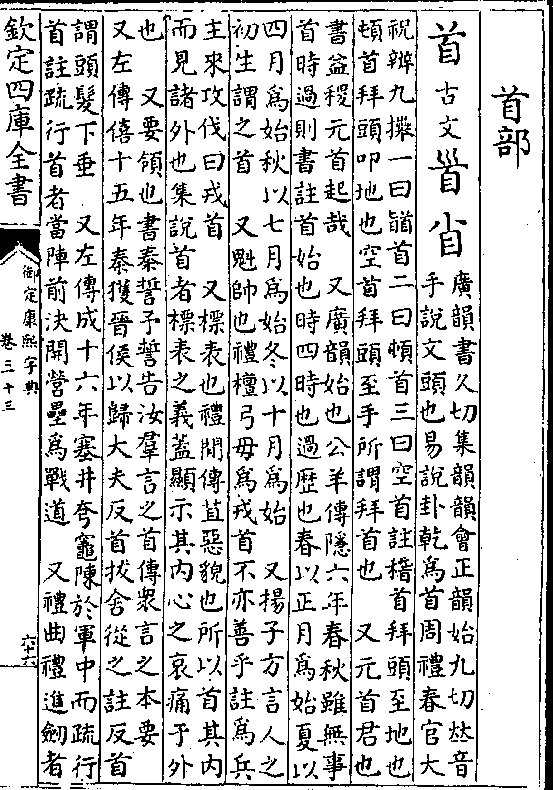 首部
首 古文𩠐𡴓 廣韻書久切集韻韻會正韻始九切𠀤音
手說文頭也易說卦乾爲首周禮春官大
祝辨九𢷎一曰䭫首二曰頓首三曰空首註稽首拜頭至地也
頓首拜頭叩地也空首拜頭至手所謂拜首也 又元首君也
書益稷元首起哉 又廣韻始也公羊傳隱六年春秋雖無事
首時過則書註首始也時四時也過歷也春以正月爲始夏以
四月爲始秋以七月爲始冬以十月爲始 又揚子方言人之
初生謂之首 又魁帥也禮檀弓毋爲戎首不亦善乎註爲兵
主來攻伐曰戎首 又標表也禮閒傳苴惡貌也所以首其内
而見諸外也集說首者標表之義蓋顯示其内心之哀痛于外
也 又要領也書秦誓予誓告汝羣言之首傳衆言之本要
又左傳僖十五年秦獲晉侯以歸大夫反首拔舍從之註反首
謂頭髮下垂 又左傳成十六年塞井夸竈陳於軍中而疏行
首註疏行首者當陣前決開營壘爲戰道 又禮曲禮進劒者
欽定四庫全書
御定康熙字典
卷三十三
六十六